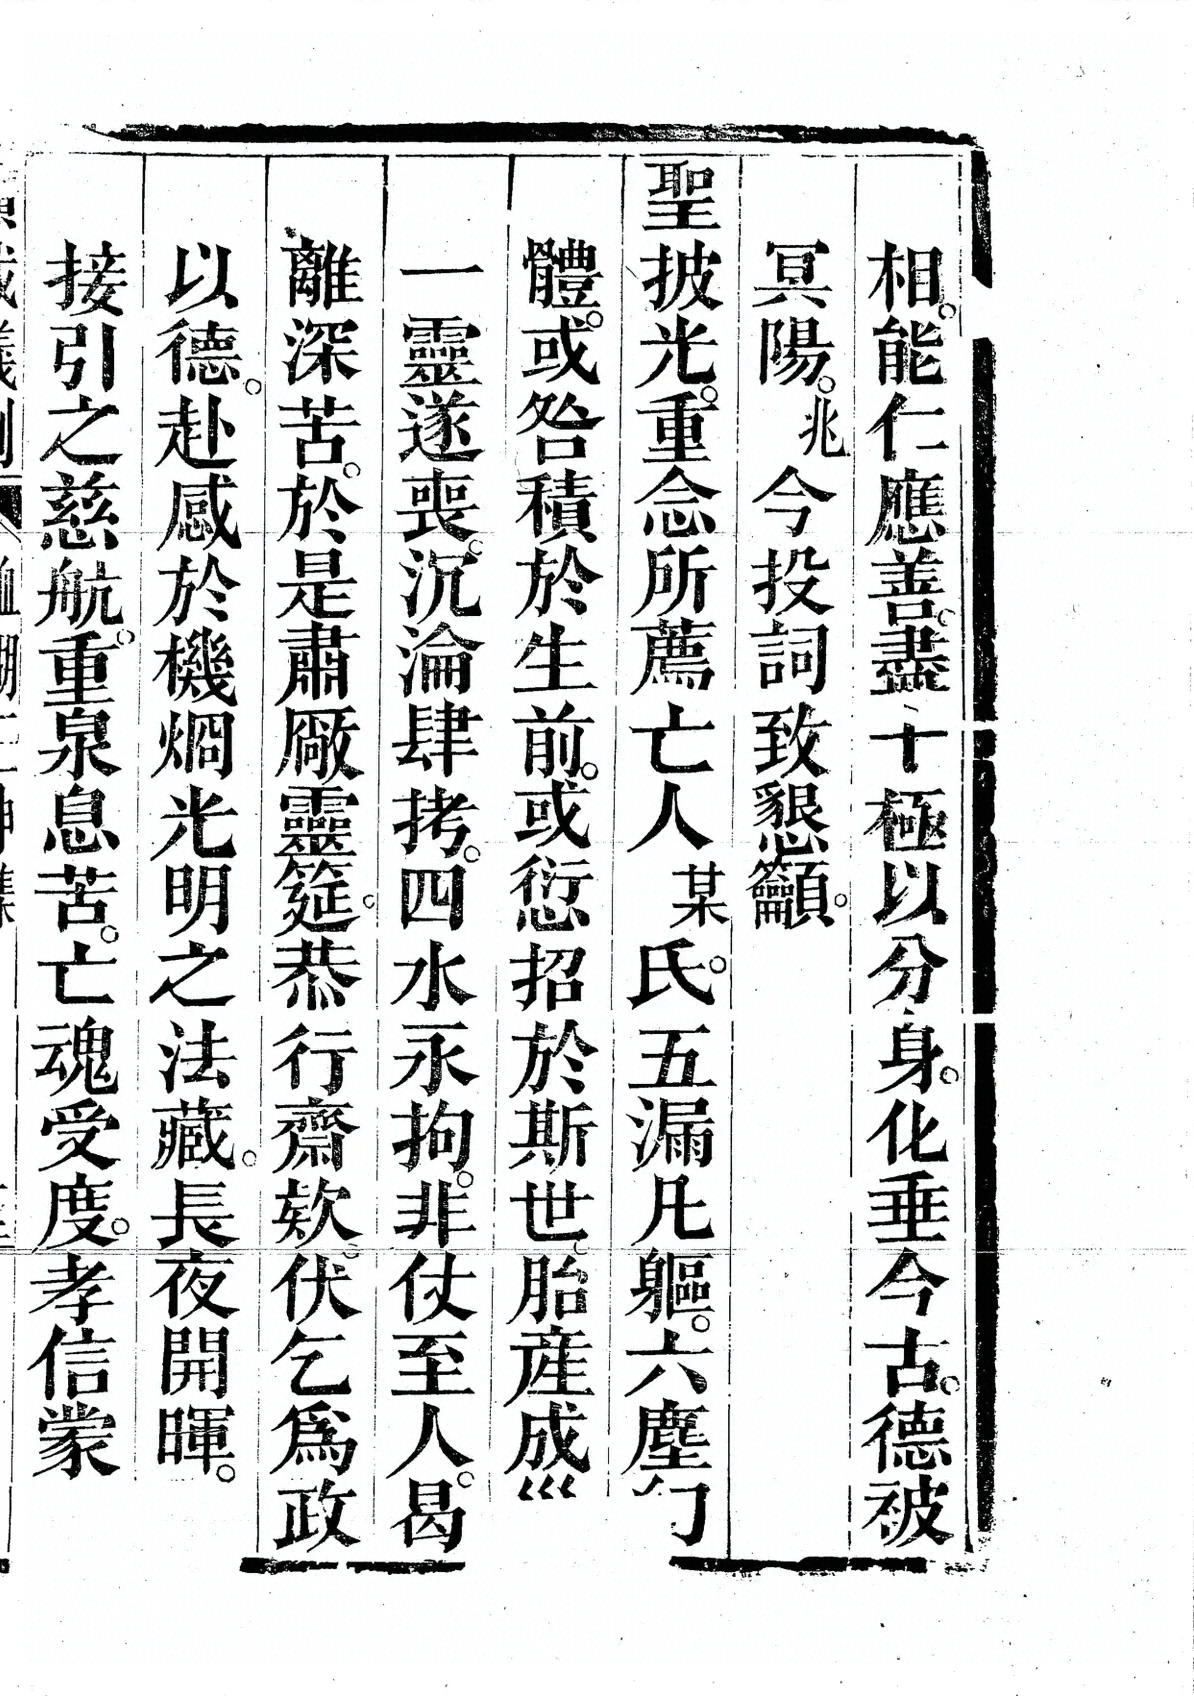 相。能仁應善。盡十極以分身。化垂今古。德被
冥陽。兆今投詞致懇籲。
聖披光。重念所薦亡人某氏。五漏凡軀。六塵
體。或咎積於生前。或愆招於斯世。胎産成
一靈遂喪。沉淪肆拷。四水永拘。非仗至人。曷
離深苦。於是肅厰靈筵。恭行齋欵。伏乞爲政
以德。赴感於機。烱光明之法藏。長夜開暉。
接引之慈航。重泉息苦。亡魂受度。孝信蒙